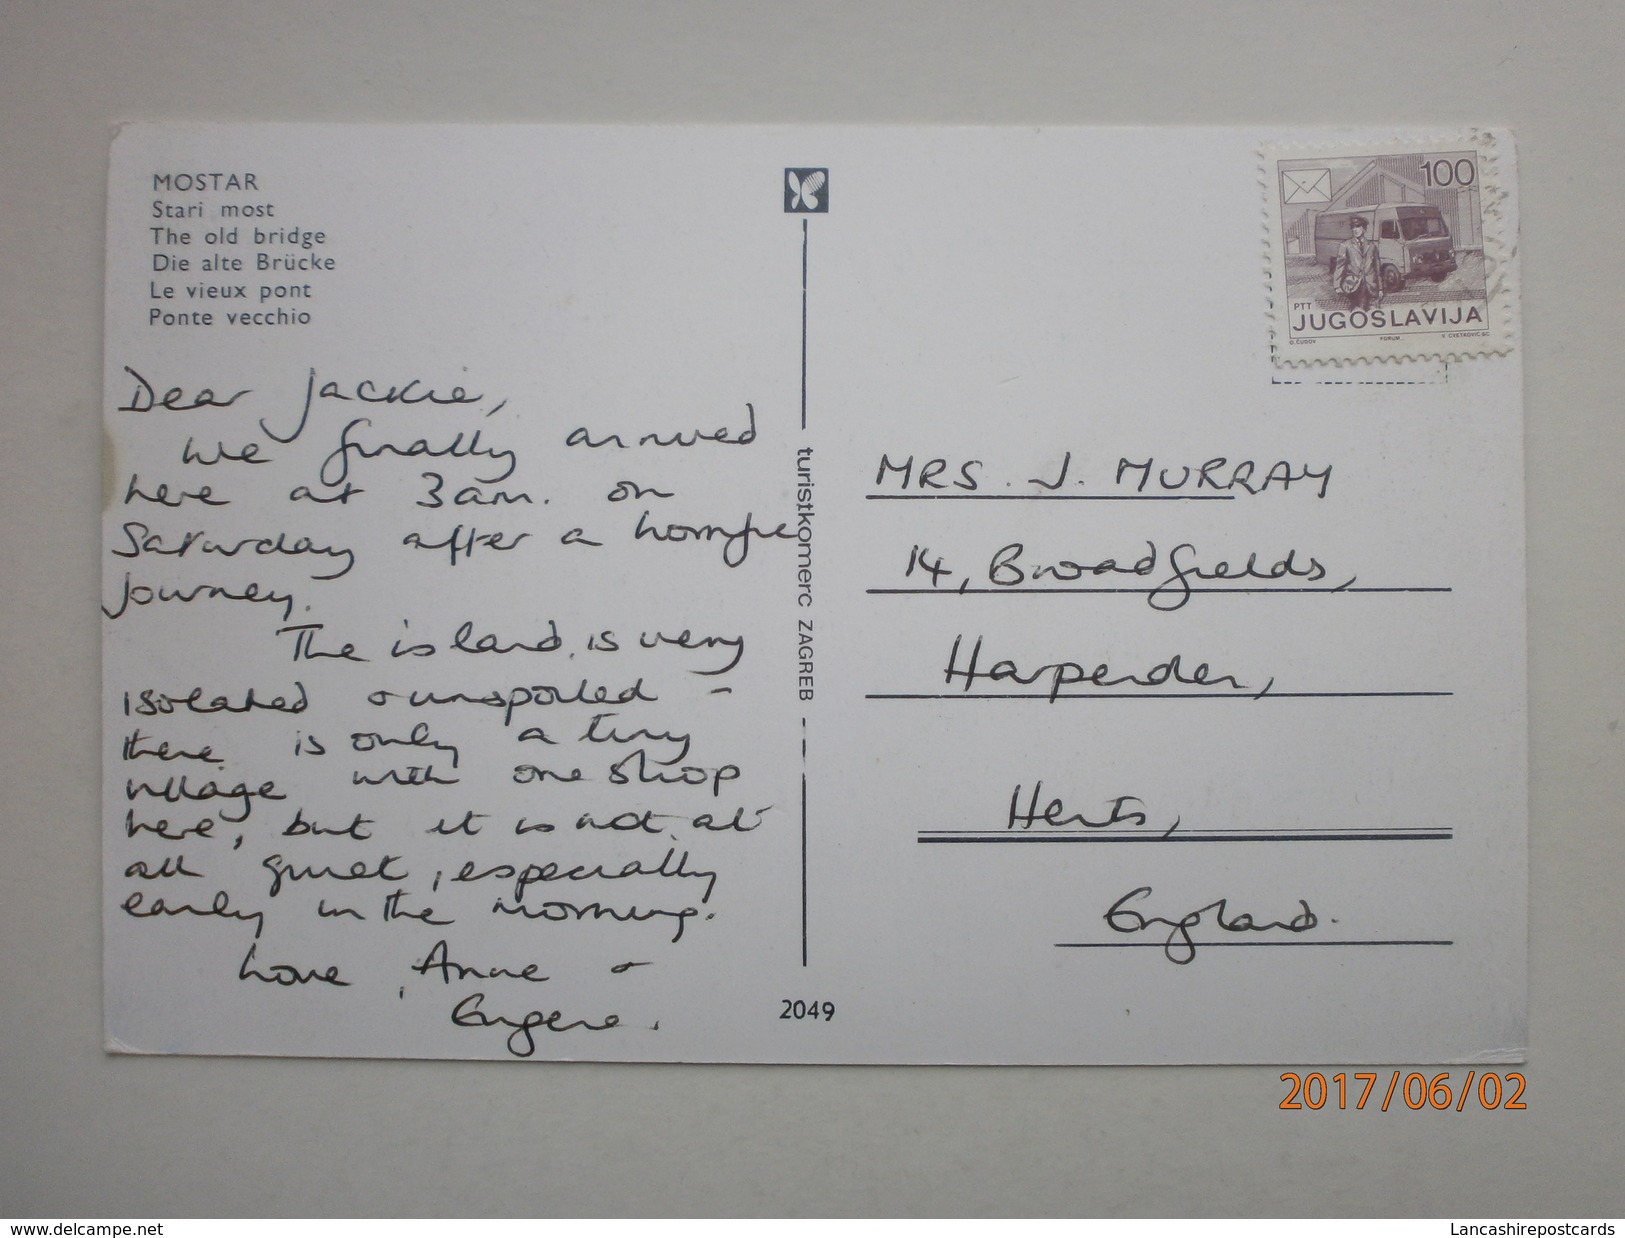 MOSTAR
Stari most
The old bridge
Die alte Brücke
Le vieux pont
Ponte vecchio
Dear Jackie,
We finally arrived
here at 3am. on
Saturday after a horrific
journey.
The island is very
isolated & unspoiled -
there is only a tiny
village with one shop
here, but it is not at
all quiet, especially
early in the morning.
Love, Anne &
Eugene.
turistkomerc ZAGREB
2049
100
PTT
JUGOSLAVIJA
FORUM
MRS. J. MURRAY
14, Broadfields,
Harpenden,
Herts,
England.
2017/06/02
www.delcampe.net
Lancashirepostcards